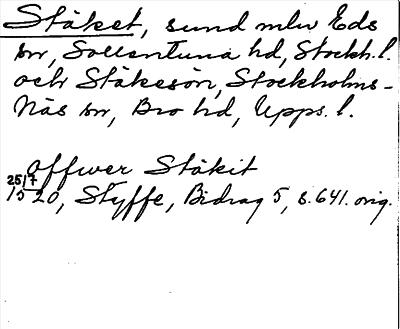 Stäket, sund mlw Eds
sn, Sollentuna hd, Stockh. l.
och Stäkesön, Stockholms-
Näs sn, Bro hd, Upps. l.
offwer Stäkit
25/7
1520, Styffe, Bidrag 5, s. 641. orig.